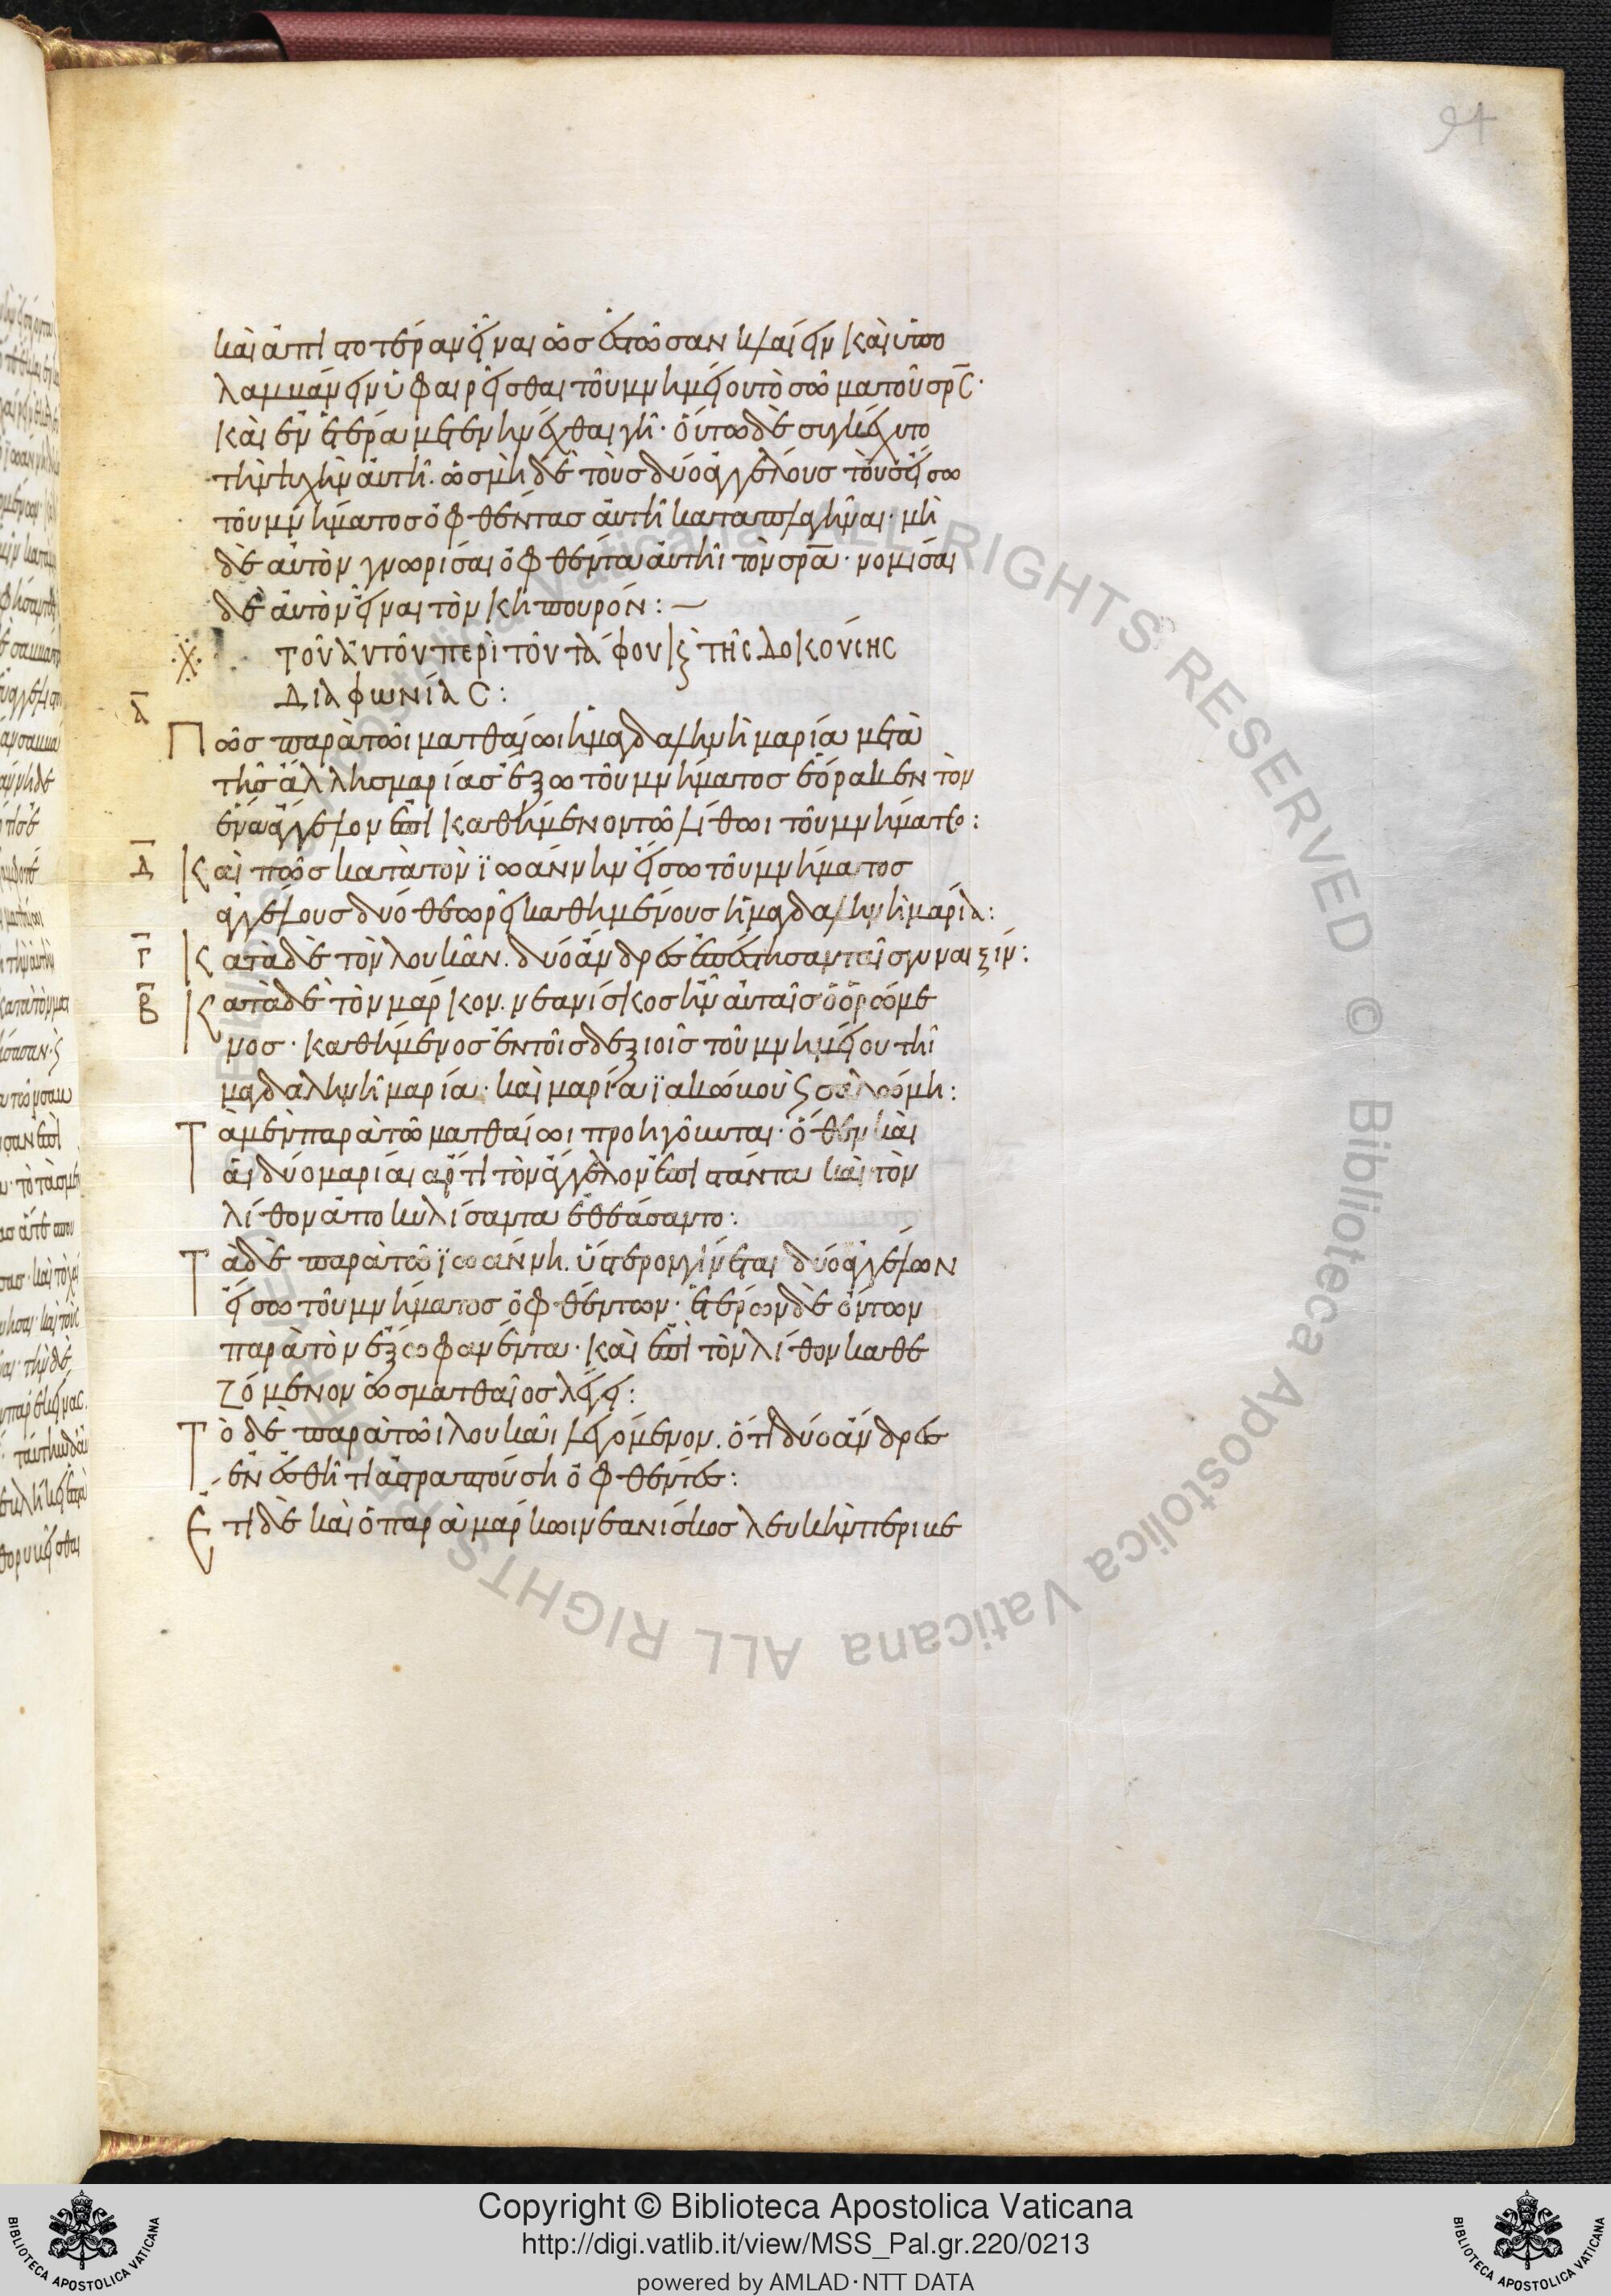 94
καὶ ἀπιστοτέραν εἶναι ὡς ἔτι ὡσαν κλαίειν καὶ ὑπο
λαμβάνειν ὑφαιρεῖσθαι τοῦ μνημείου τὸ σῶμα τοῦ σρ̅ς·
καὶ ἐν ἑτέρα μετενηνέχθαι γῆ· οὕτω δὲ συγκέχυτο
τὴν ψυχὴν αὐτῆ. ὡς μὴ δὲ τοὺς δύο ἀγγέλους τοὺς εἴσω
τοῦ μνήματος ὀφθέντας αὐτῆ καταπλαγῆναι· μὴ
δὲ αὐτὸν γνωρίσαι ὀφθέντα αὐτῆι τὸν σρ̅α· νομίσαι
δὲ αὐτὸν εἶναι τὸν κηπουρόν:
τοῦ αὐτοῦ περὶ τοῦ τάφου κ τῆς δοκούσης
διαφωνίας:
Α̅
Πῶς παρὰ τῶι ματθαίωι ἡ μαγδαληνὴ μαρία μετὰ
τῆς ἄλλης μαρίας ἔξω τοῦ μνήματος ἑόρακεν τὸν
ἕνα ἄγγελον ἐπὶ καθήμενον τῶ λίθωι τοῦ μνήματος:
Δ̅ Καὶ πῶς κατὰ τὸν ϊωάννην εἴσω τοῦ μνήματος
ἀγγέλους δύο θεωρεῖ καθημένους ἡ μαγδαληνὴ μαρία:
Γ̅ Κατὰ δὲ τὸν λουκᾶν. δύο ἄνδρες ἐπέστησαν ταῖς γυναιξίν:
Β̅ Κατὰ δὲ τὸν μάρκον. νεανίσκος ἦν αὐταῖς ὁ ὁρώμε
νος· καθήμενος ἐν τοῖς δεξιοῖς τοῦ μνημείου τῆ
μαγδαληνῆ μαρία· καὶ μαρία ϊακώβου ϛ σαλώμη:
Τὰ μὲν παρὰ τῶ ματθαίωι προηγοῦνται· ὅθεν καὶ
αἱ δύο μαρίαι ἄρτι τὸν ἄγγελον ἐπιστάντα καὶ τὸν
λίθον ἀποκυλίσαντα ἐθεάσαντο:
Τὰ δὲ παρὰ τῶ ϊωάννη. ὕστερον γίνεται δύο ἀγγέλων
εἴσω τοῦ μνήματος ὀφθέντων· ἑτέρων δὲ ὄντων
παρὰ τὸν ἔξω φανέντα· καὶ ἐπὶ τὸν λίθον καθε
ζόμενον ὡς ματθαῖος λέγει:
Τὸ δὲ παρὰ τῶι λουκᾶι λεγόμενον. ὅτι δύο ἄνδρες
ἐν ἐσθῆτι ἀστραπτούση ὀφθέντες:
Ἔτι δὲ καὶ ὁ παρὰ μάρκωι νεανίσκος λευκὴν περιβε
ALL RIGHTS RESERVED © Biblioteca Apostolica Vaticana
BIBLIOTECA APOSTOLICA VATICANA
Copyright © Biblioteca Apostolica Vaticana
http://digi.vatlib.it/view/MSS_Pal.gr.220/0213
powered by AMLAD·NTT DATA
BIBLIOTECA APOSTOLICA VATICANA